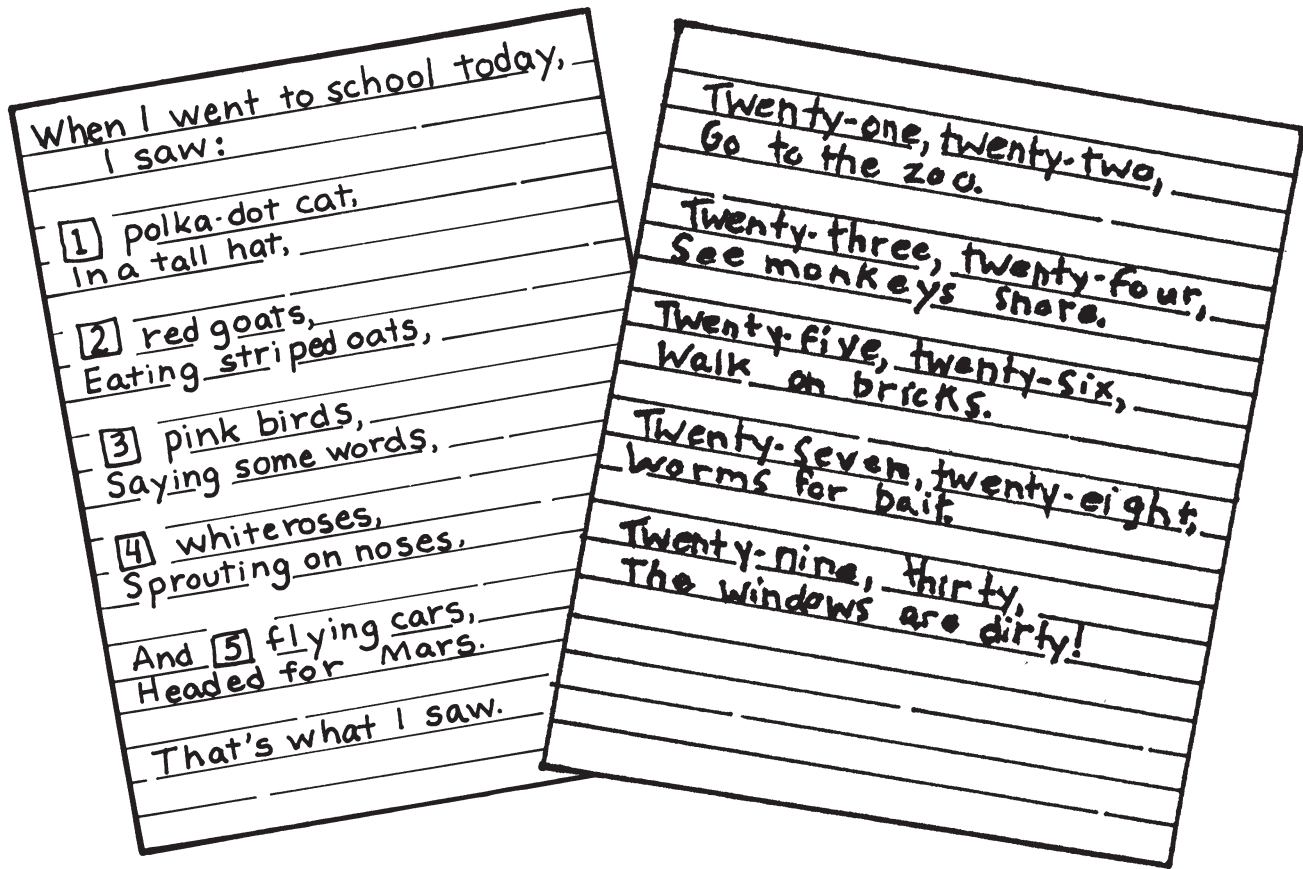 When I went to school today,
I saw:
1 polka-dot cat,
In a tall hat,
2 red goats,
Eating striped oats,
3 pink birds,
Saying some words,
4 white roses,
Sprouting on noses,
And 5 flying cars,
Headed for Mars.
That's what I saw.
Twenty-one, twenty-two,
Go to the zoo.
Twenty-three, twenty-four,
See monkeys snore.
Twenty-five, twenty-six,
Walk on bricks.
Twenty-seven, twenty-eight,
Worms for bait.
Twenty-nine, thirty,
The windows are dirty!